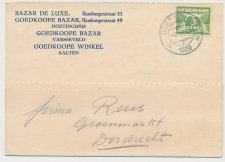 BAZAR DE LUXE, Hamburgerstraat 43
GOEDKOOPE BAZAR, Hamburgerstraat 49
DOETINCHEM
GOEDKOOPE BAZAR
VARSSEVELD
GOEDKOOPE WINKEL
AALTEN
NEDERLAND
Firma Reus
Groenmarkt
Dordrecht